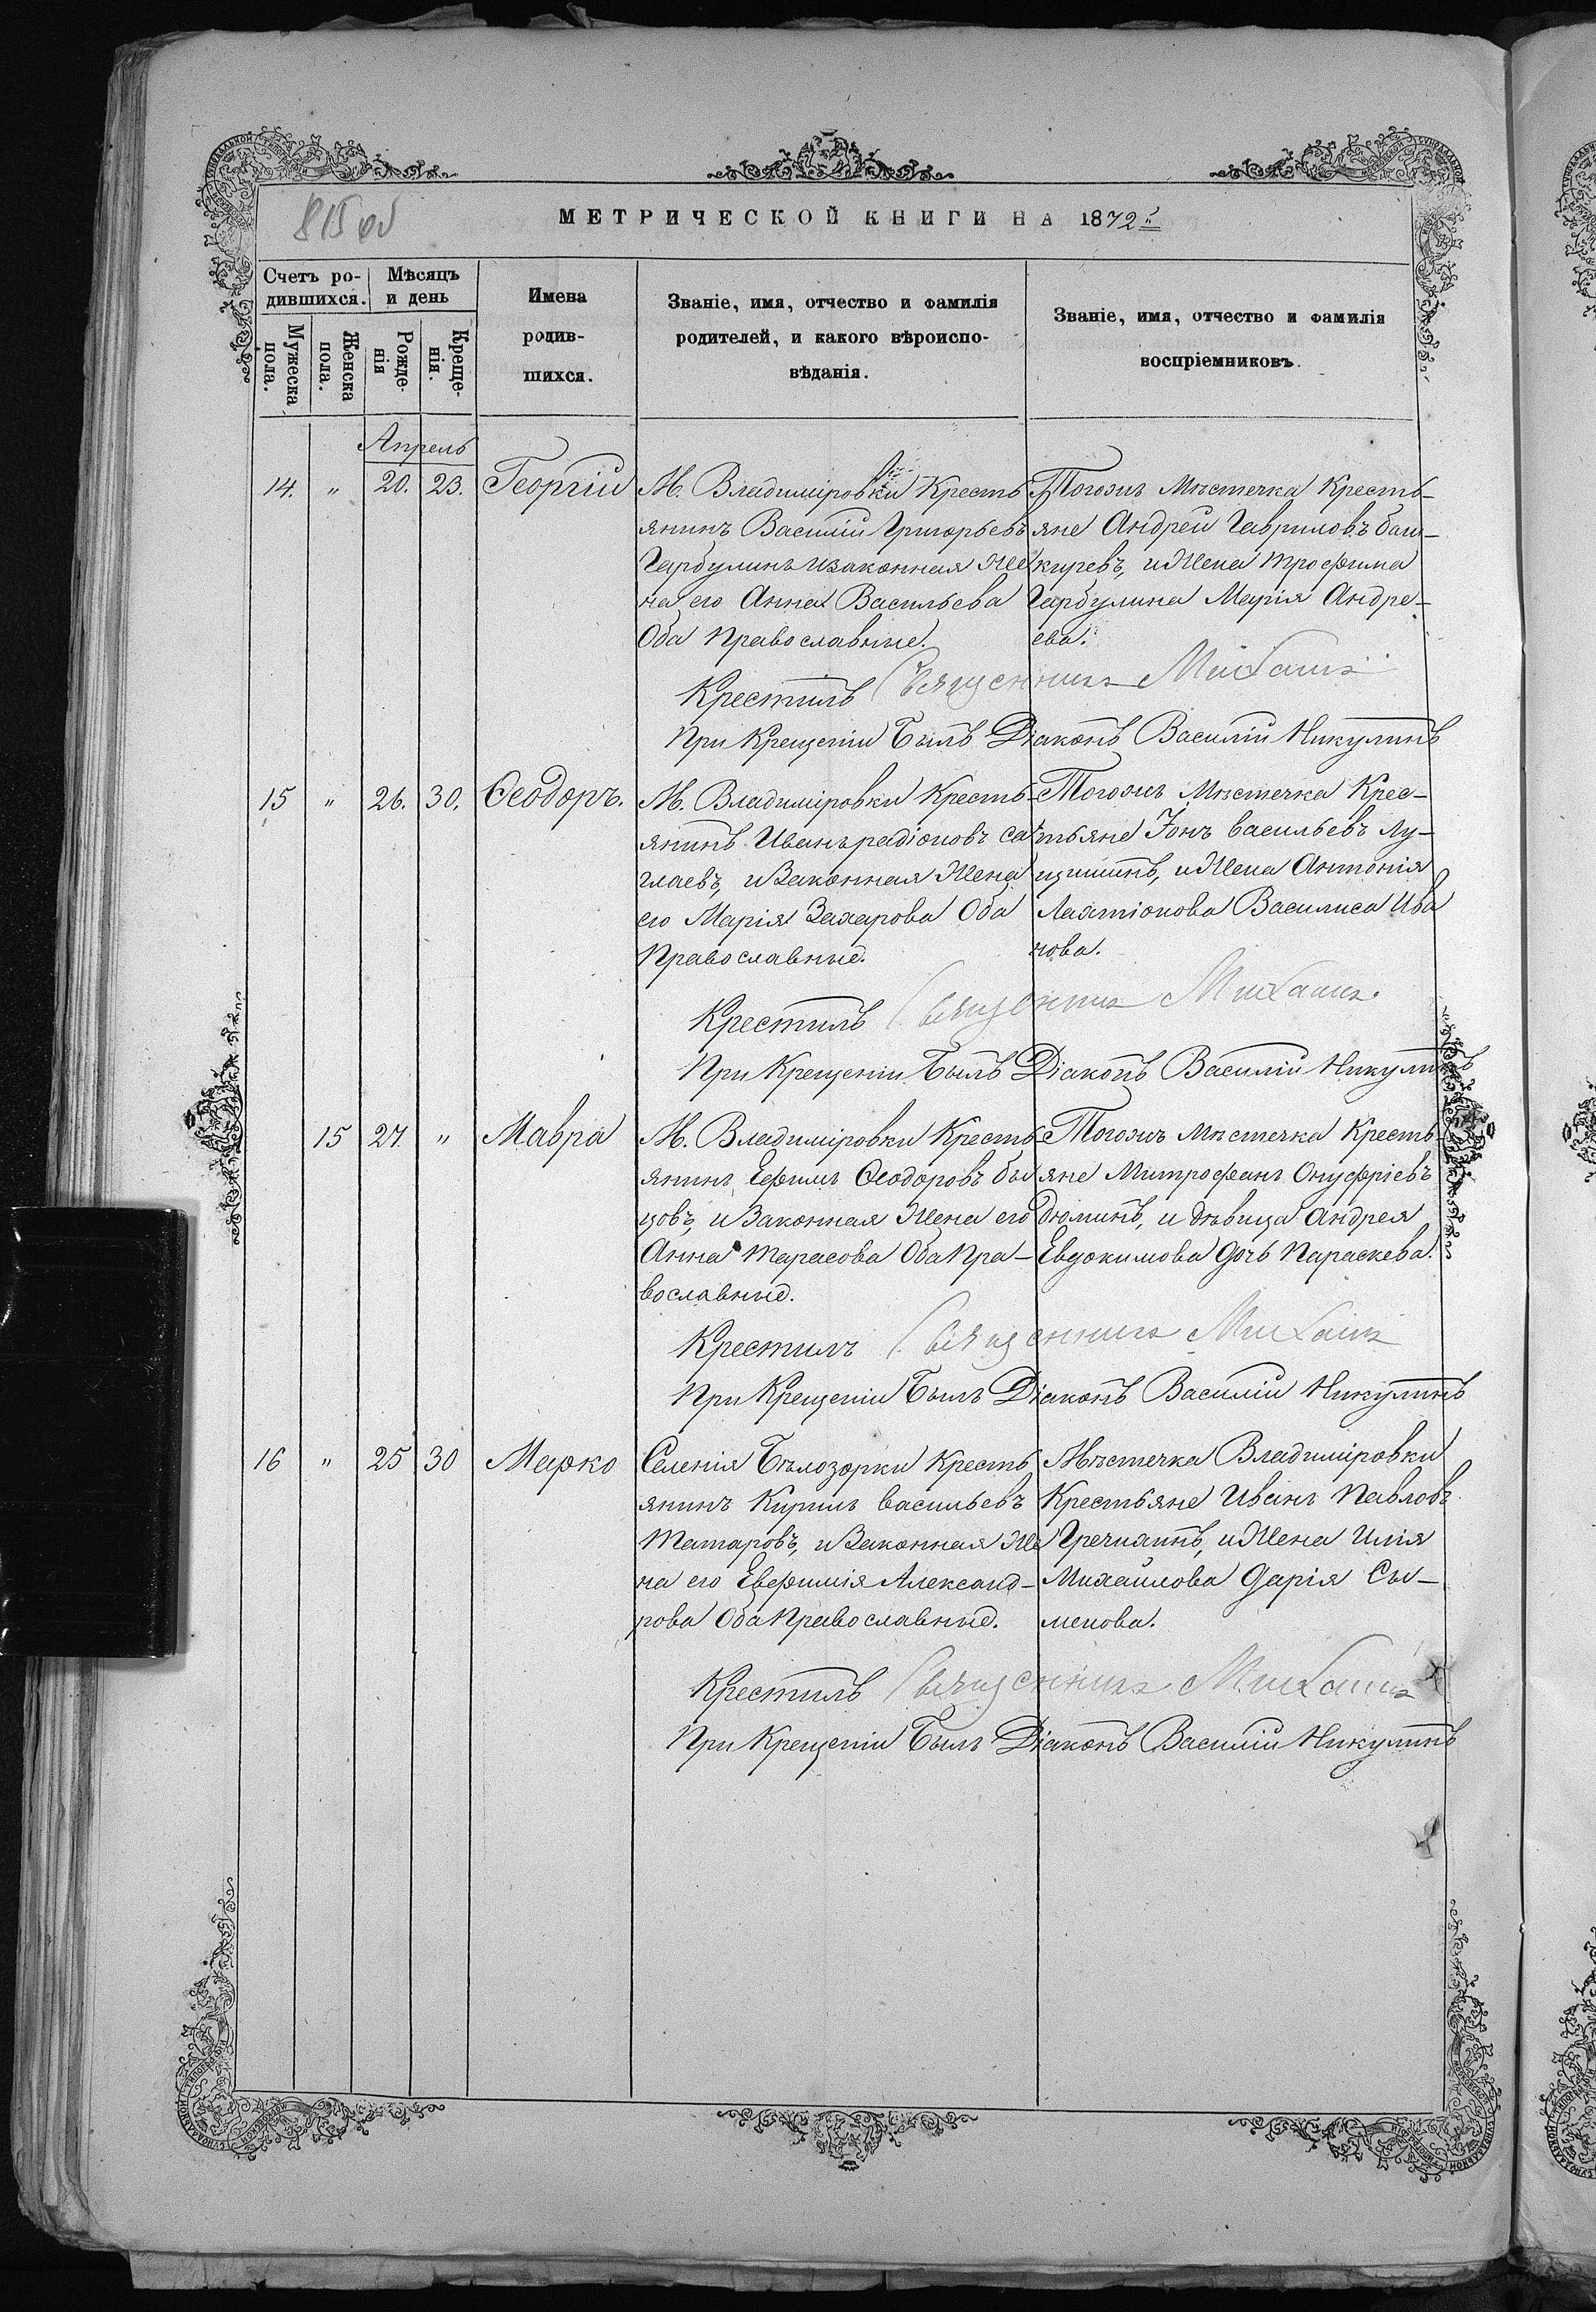 815 об
МЕТРИЧЕСКОЙ КНИГИ НА 1872 г.
Счетъ ро-
дившихся.
Мѣсяцъ
и день
Мужеска
пола.
Женска
пола.
Рожде-
нія
Креще-
нія.
Имена
родив-
шихся.
Званіе, имя, отчество и фамилія
родителей, и какого вѣроиспо-
вѣданія.
Званіе, имя, отчество и фамилія
воспріемниковъ.
Апрель
14. " 20. 23. Георгій
М. Владиміровки Кресть
янинъ Василій Григорьевъ
Гарбулинъ изаконная Же
на его Анна Васильева
Оба Православные.
Тогожъ Мѣстечка Кресть-
яне Андрей Гавриловъ баш-
киревъ, иЖена трофима
Гарбулина Марія Андре-
ева.
Крестилъ Священникъ Михаилъ
При Крещеніи Былъ Діаконъ Василій Никулинъ
15 " 26. 30. Ѳеодоръ.
М. Владиміровки Кресть-
янинъ Иванъ радіоновъ са
глаевъ, иЗаконная Жена
его Марія Захарова Оба
Православные.
Тогожъ Мѣстечка Крес-
тьяне Іонъ васильевъ Лу-
цишинъ, иЖена Антонія
Лактіонова Василиса Ива
нова.
Крестилъ Священникъ Михаилъ
При Крещеніи Былъ Діаконъ Василій Никулинъ
15 27. " Мавра
М. Владиміровки Кресть
янинъ Ефимъ Ѳеодоровъ бы
цовъ, иЗаконная Жена его
Анна тарасова Оба Пра-
вославные.
Тогожъ Мѣстечка Кресть-
яне Митрофанъ Онуфріевъ
Дюминъ, и дѣвица Андрея
Евдокимова дочь Параскева.
Крестилъ Священникъ Михаилъ
При Крещеніи Былъ Діаконъ Василій Никулинъ
16 " 25 30 Марко
Селенія Бѣлозорки Кресть
янинъ Кирилъ васильевъ
Татаровъ, иЗаконная Же
на его Евфимія Александ-
рова Оба Православные.
Мѣстечка Владиміровки
Крестьяне Иванъ Павловъ
Гречихинъ, иЖена Илія
Михайлова Дарія Сы-
менова.
Крестилъ Священникъ Михаилъ
При Крещеніи Былъ Діаконъ Василій Никулинъ